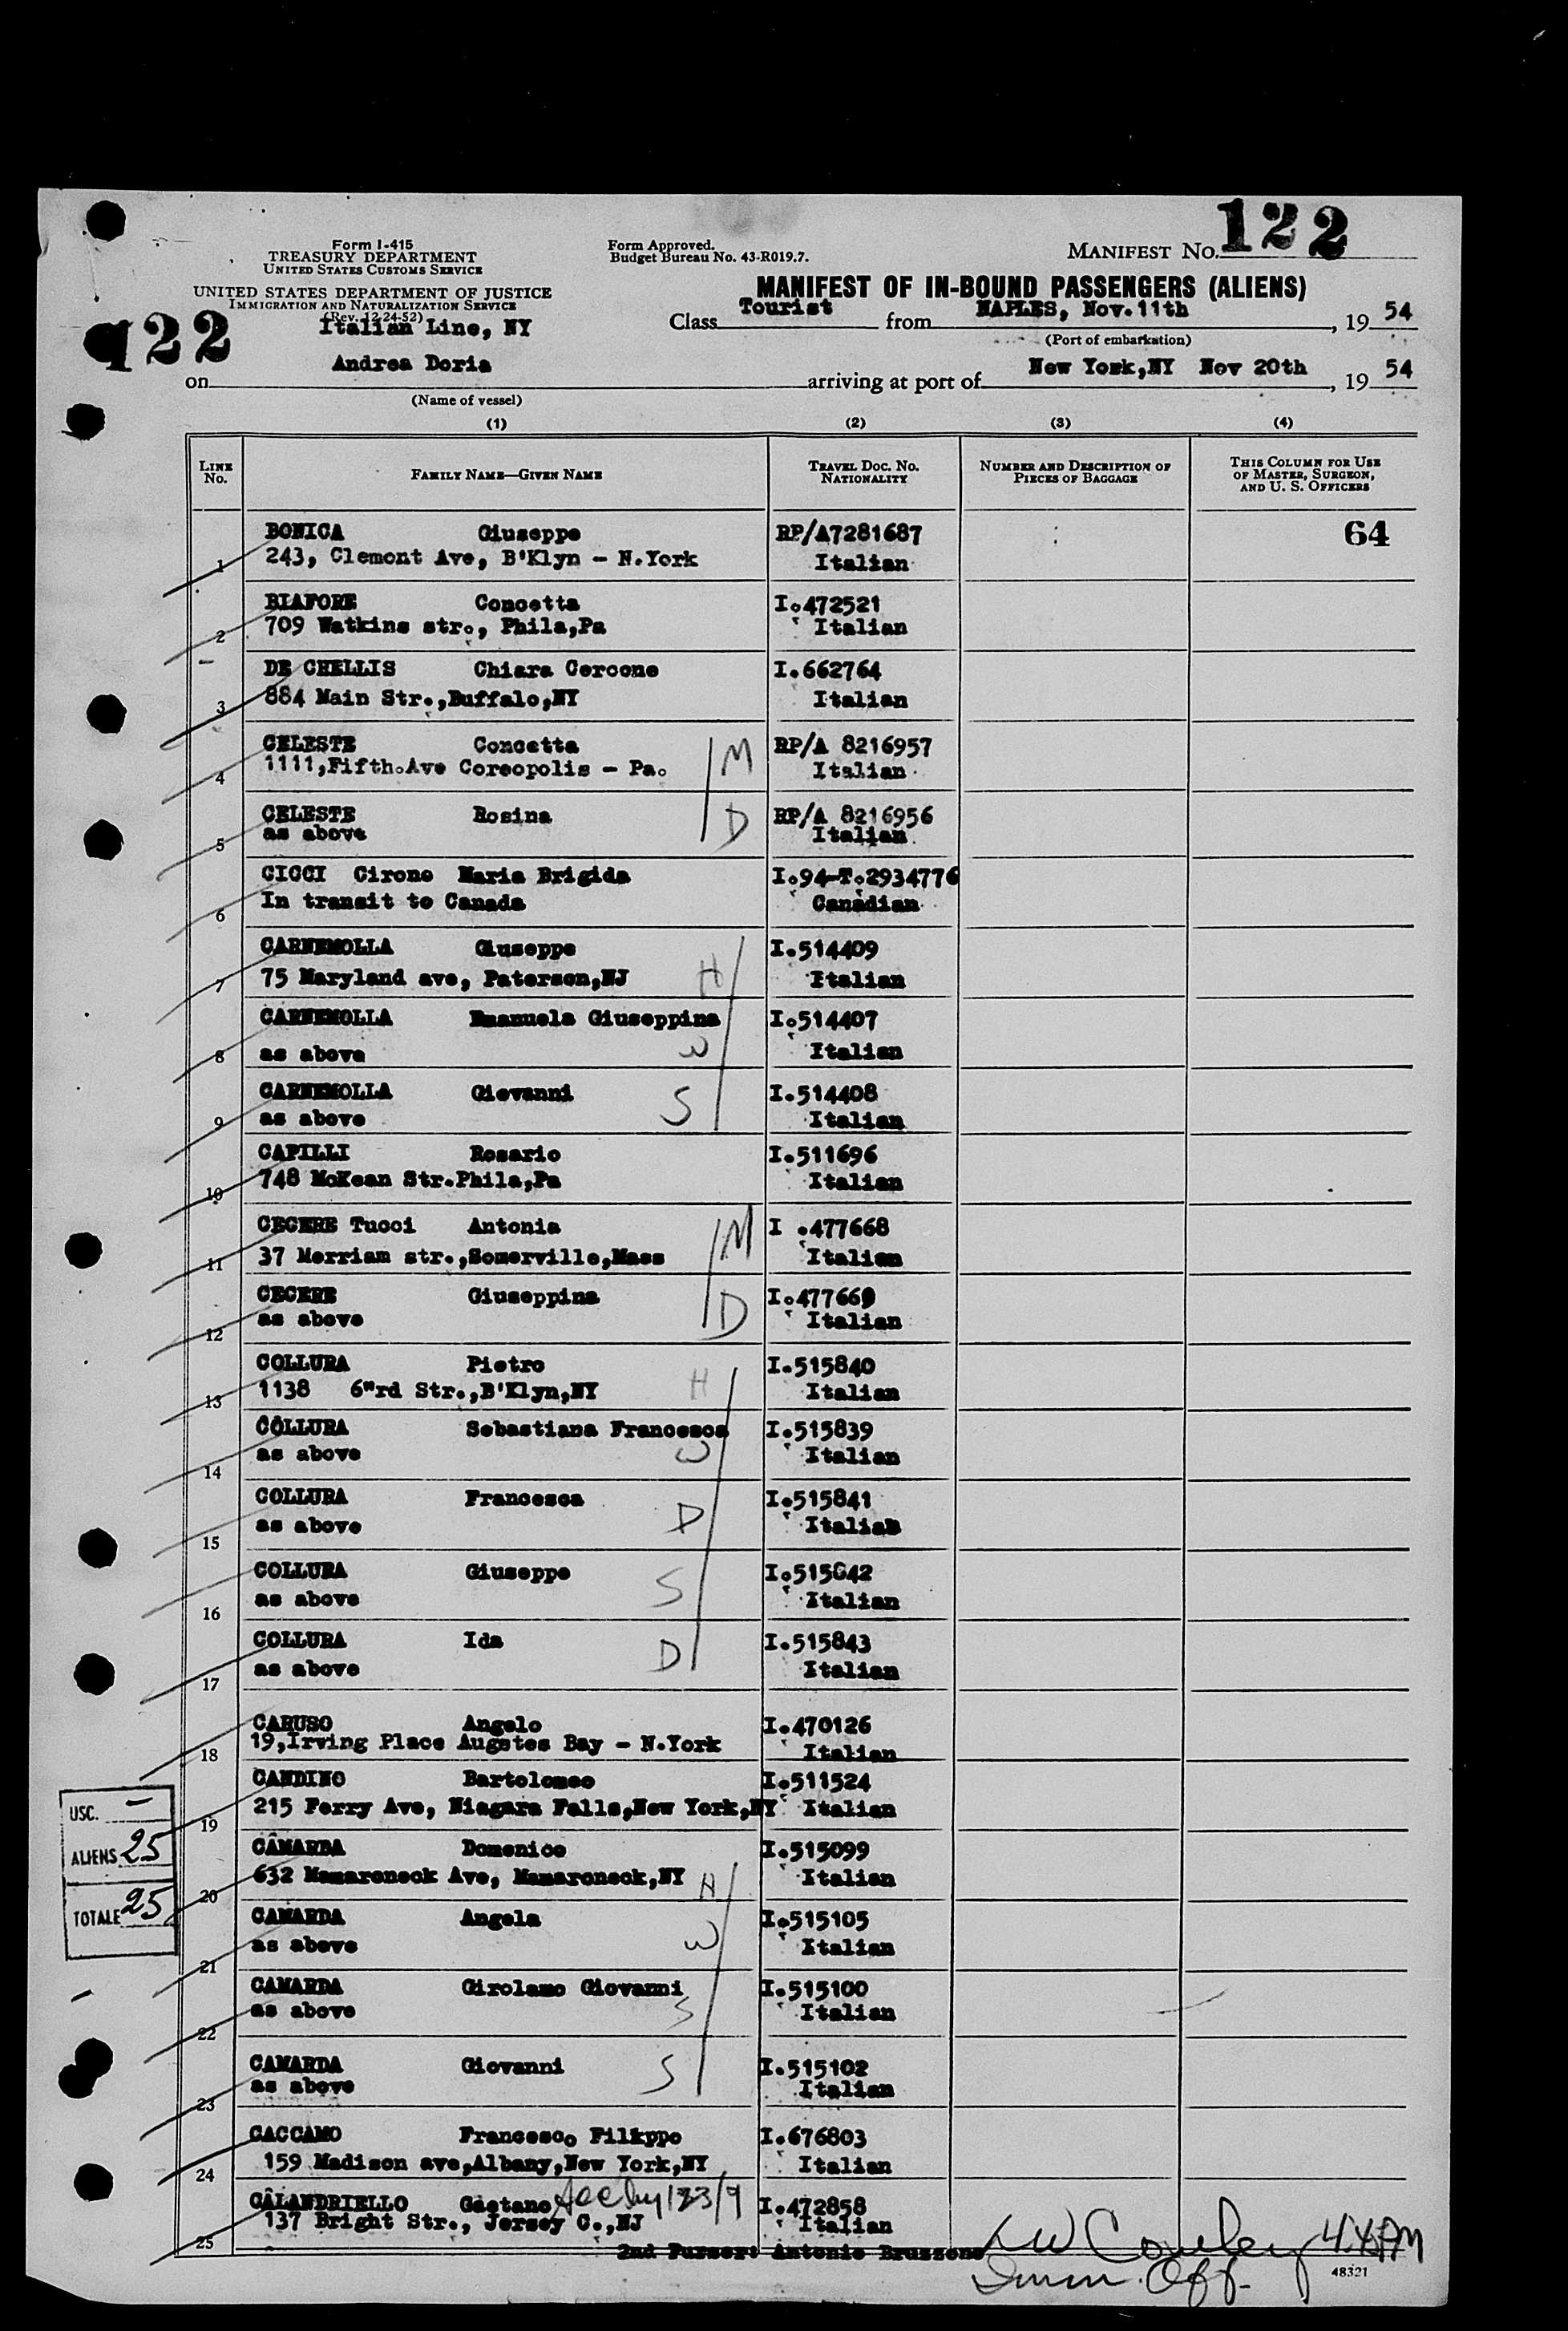 122
Form I-415
TREASURY DEPARTMENT
UNITED STATES CUSTOMS SERVICE
UNITED STATES DEPARTMENT OF JUSTICE
IMMIGRATION AND NATURALIZATION SERVICE
(Rev. 12-24-52)
Form Approved.
Budget Bureau No. 43-R019.7.
MANIFEST No. 122
MANIFEST OF IN-BOUND PASSENGERS (ALIENS)
122
Italian Line, NY
Class Tourist from NAPLES, Nov.11th, 19 54
(Port of embarkation)
on Andrea Doria arriving at port of New York,NY Nov 20th, 19 54
(Name of vessel)
(1) (2) (3) (4)
LINE No. FAMILY NAME—GIVEN NAME TRAVEL DOC. No. NATIONALITY NUMBER AND DESCRIPTION OF PIECES OF BAGGAGE THIS COLUMN FOR USE OF MASTER, SURGEON, AND U. S. OFFICERS
64
1 BONICA Giuseppe RP/A7281687
243, Clemont Ave, B'Klyn - N.York Italian
2 BIAFORE Concetta I.472521
709 Watkins str., Phila,Pa Italian
3 DE CHELLIS Chiara Cercone I.662764
884 Main Str.,Buffalo,NY Italian
4 CELESTE Concetta M RP/A 8216957
1111,Fifth.Ave Coreopolis - Pa. Italian
5 CELESTE Rosina D RP/A 8216956
as above Italian
6 CICCI Cirone Maria Brigida I.94-T.2934776
In transit to Canada Canadian
7 CARNEMOLLA Giuseppe I.514409
75 Maryland ave, Paterson,NJ H Italian
8 CARNEMOLLA Emanuela Giuseppina I.514407
as above W Italian
9 CARNEMOLLA Giovanni S I.514408
as above Italian
10 CAPILLI Rosario I.511696
748 McKean Str.Phila,Pa Italian
11 CECERE Tucci Antonia M I .477668
37 Merriam str.,Somerville,Mass Italian
12 CECERE Giuseppina D I.477669
as above Italian
13 COLLURA Pietro I.515840
1138 6"rd Str.,B'Klyn,NY H Italian
14 COLLURA Sebastiana Francesca I.515839
as above W Italian
15 COLLURA Francesca I.515841
as above D Italian
16 COLLURA Giuseppe S I.515842
as above Italian
17 COLLURA Ida D I.515843
as above Italian
18 CARUSO Angelo I.470126
19,Irving Place Augstes Bay - N.York Italian
19 CANDINO Bartolomeo I.511524
215 Ferry Ave, Niagara Falls,New York,NY Italian
20 CAMARDA Domenico I.515099
632 Mamaroneck Ave, Mamaroneck,NY H Italian
21 CAMARDA Angela I.515105
as above W Italian
22 CAMARDA Girolamo Giovanni I.515100
as above S Italian
23 CAMARDA Giovanni S I.515102
as above Italian
24 CACCAMO Francesco Filippo I.676803
159 Madison ave,Albany,New York,NY Italian
25 CALANDRIELLO Gaetano 123/9 I.472858
137 Bright Str., Jersey C.,NJ Italian
USC. —
ALIENS 25
TOTALE 25
2nd Purser: Antonio Brussone
Imm. Off.
48321